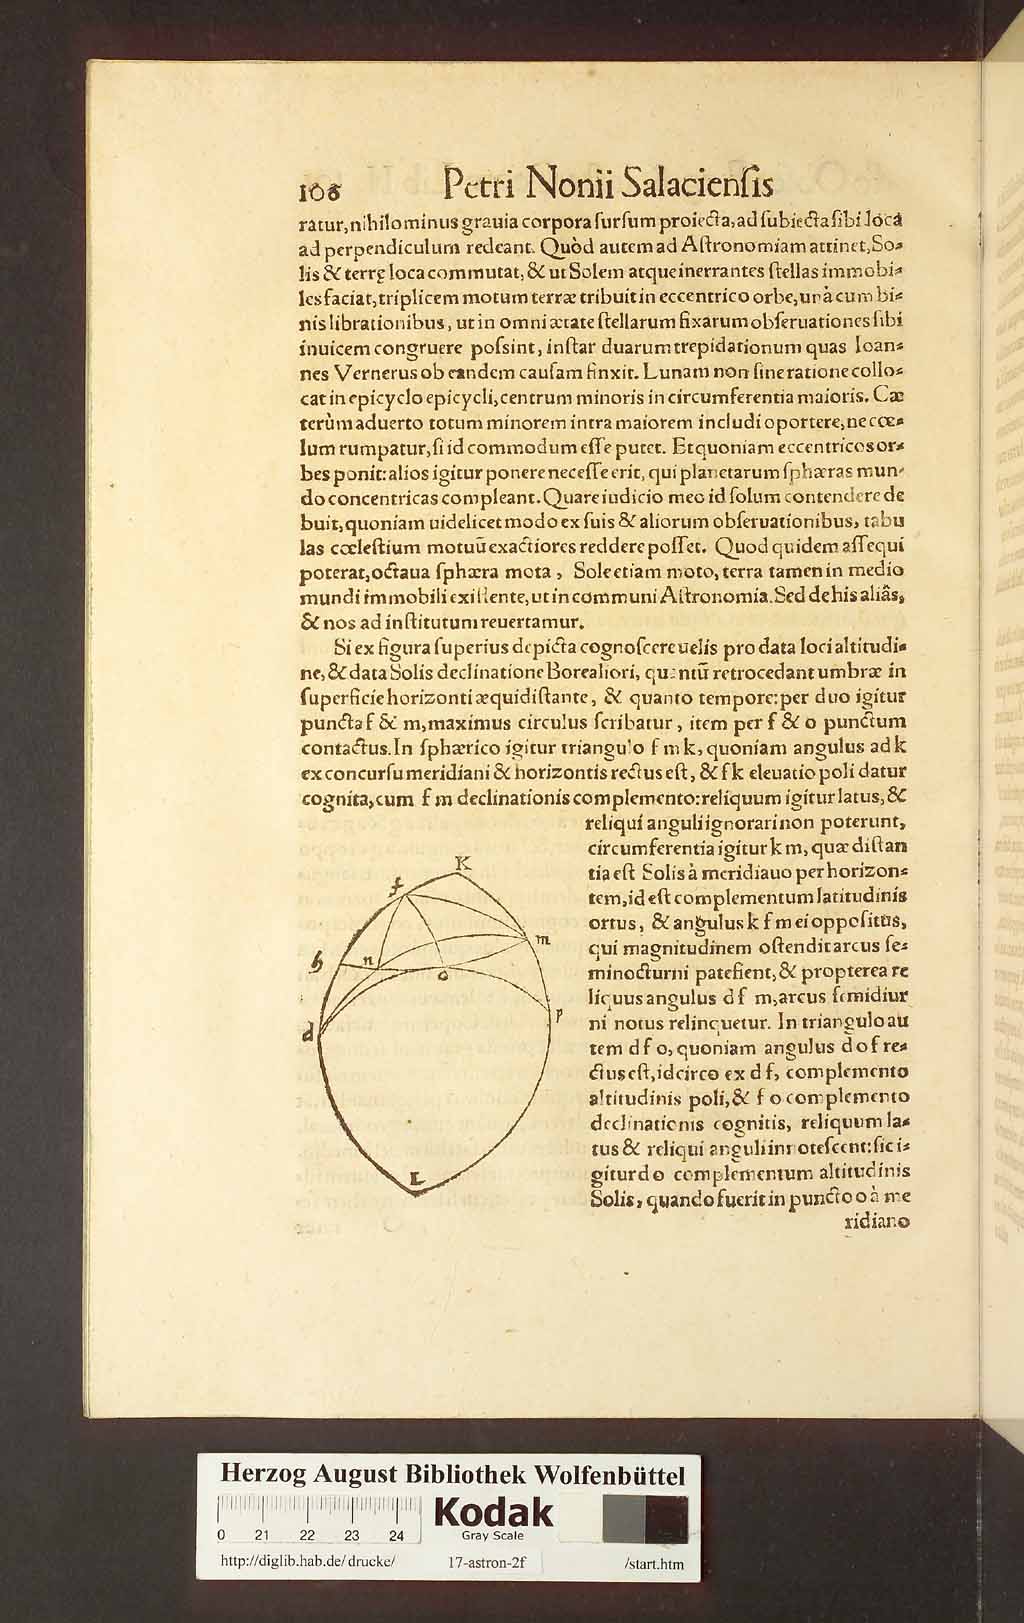 106 Petri Nonii Salaciensis
ratur, nihilominus grauia corpora sursum proiecta, ad subiecta sibi loca
ad perpendiculum redeant. Quòd autem ad Astronomiam attinet, So⸗
lis & terrę loca commutat, & ut Solem atque inerrantes stellas immobi⸗
les faciat, triplicem motum terræ tribuit in eccentrico orbe, unà cum bi⸗
nis librationibus, ut in omni ætate stellarum fixarum obseruationes sibi
inuicem congruere possint, instar duarum trepidationum quas Ioan⸗
nes Vernerus ob eandem causam finxit. Lunam non sine ratione collo⸗
cat in epicyclo epicycli, centrum minoris in circumferentia maioris. Cæ
terùm aduerto totum minorem intra maiorem includi oportere, ne cœ⸗
lum rumpatur, si id commodum esse putet. Et quoniam eccentricos or⸗
bes ponit: alios igitur ponere necesse erit, qui planetarum sphæras mun⸗
do concentricas compleant. Quare iudicio meo id solum contendere de
buit, quoniam uidelicet modo ex suis & aliorum obseruationibus, tabu
las cœlestium motuũ exactiores reddere posset. Quod quidem assequi
poterat, octaua sphæra mota, Sole etiam moto, terra tamen in medio
mundi immobili existente, ut in communi Astronomia. Sed de his aliâs,
& nos ad institutum reuertamur.
Si ex figura superius depicta cognoscere uelis pro data loci altitudi⸗
ne, & data Solis declinatione Borealiori, quantũ retrocedant umbræ in
superficie horizonti æquidistante, & quanto tempore: per duo igitur
puncta f & m, maximus circulus scribatur, item per f & o punctum
contactus. In sphærico igitur triangulo f m k, quoniam angulus ad k
ex concursu meridiani & horizontis rectus est, & f k eleuatio poli datur
cognita, cum f m declinationis complemento: reliquum igitur latus, &
reliqui anguli ignorari non poterunt,
circumferentia igitur k m, quæ distan
tia est Solis à meridiauo per horizon⸗
tem, id est complementum latitudinis
ortus, & angulus k f m ei oppositus,
qui magnitudinem ostendit arcus se⸗
minocturni patefient, & propterea re
liquus angulus d f m, arcus semidiur
ni notus relinquetur. In triangulo au
tem d f o, quoniam angulus d o f re⸗
ctus est, idcirco ex d f, complemento
altitudinis poli, & f o complemento
declinationis cognitis, reliquum la⸗
tus & reliqui anguli innotescent: sic i⸗
gitur d o complementum altitudinis
Solis, quando fuerit in puncto o à me
ridiano
K
f
m
h
n
o
p
d
L
Herzog August Bibliothek Wolfenbüttel
0 21 22 23 24
Kodak
Gray Scale
http://diglib.hab.de/drucke/ 17-astron-2f /start.htm